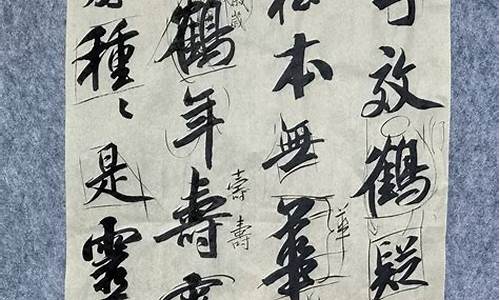 效鶴疑
松本無華
華
鶴年壽
壽壽
種〻是靈